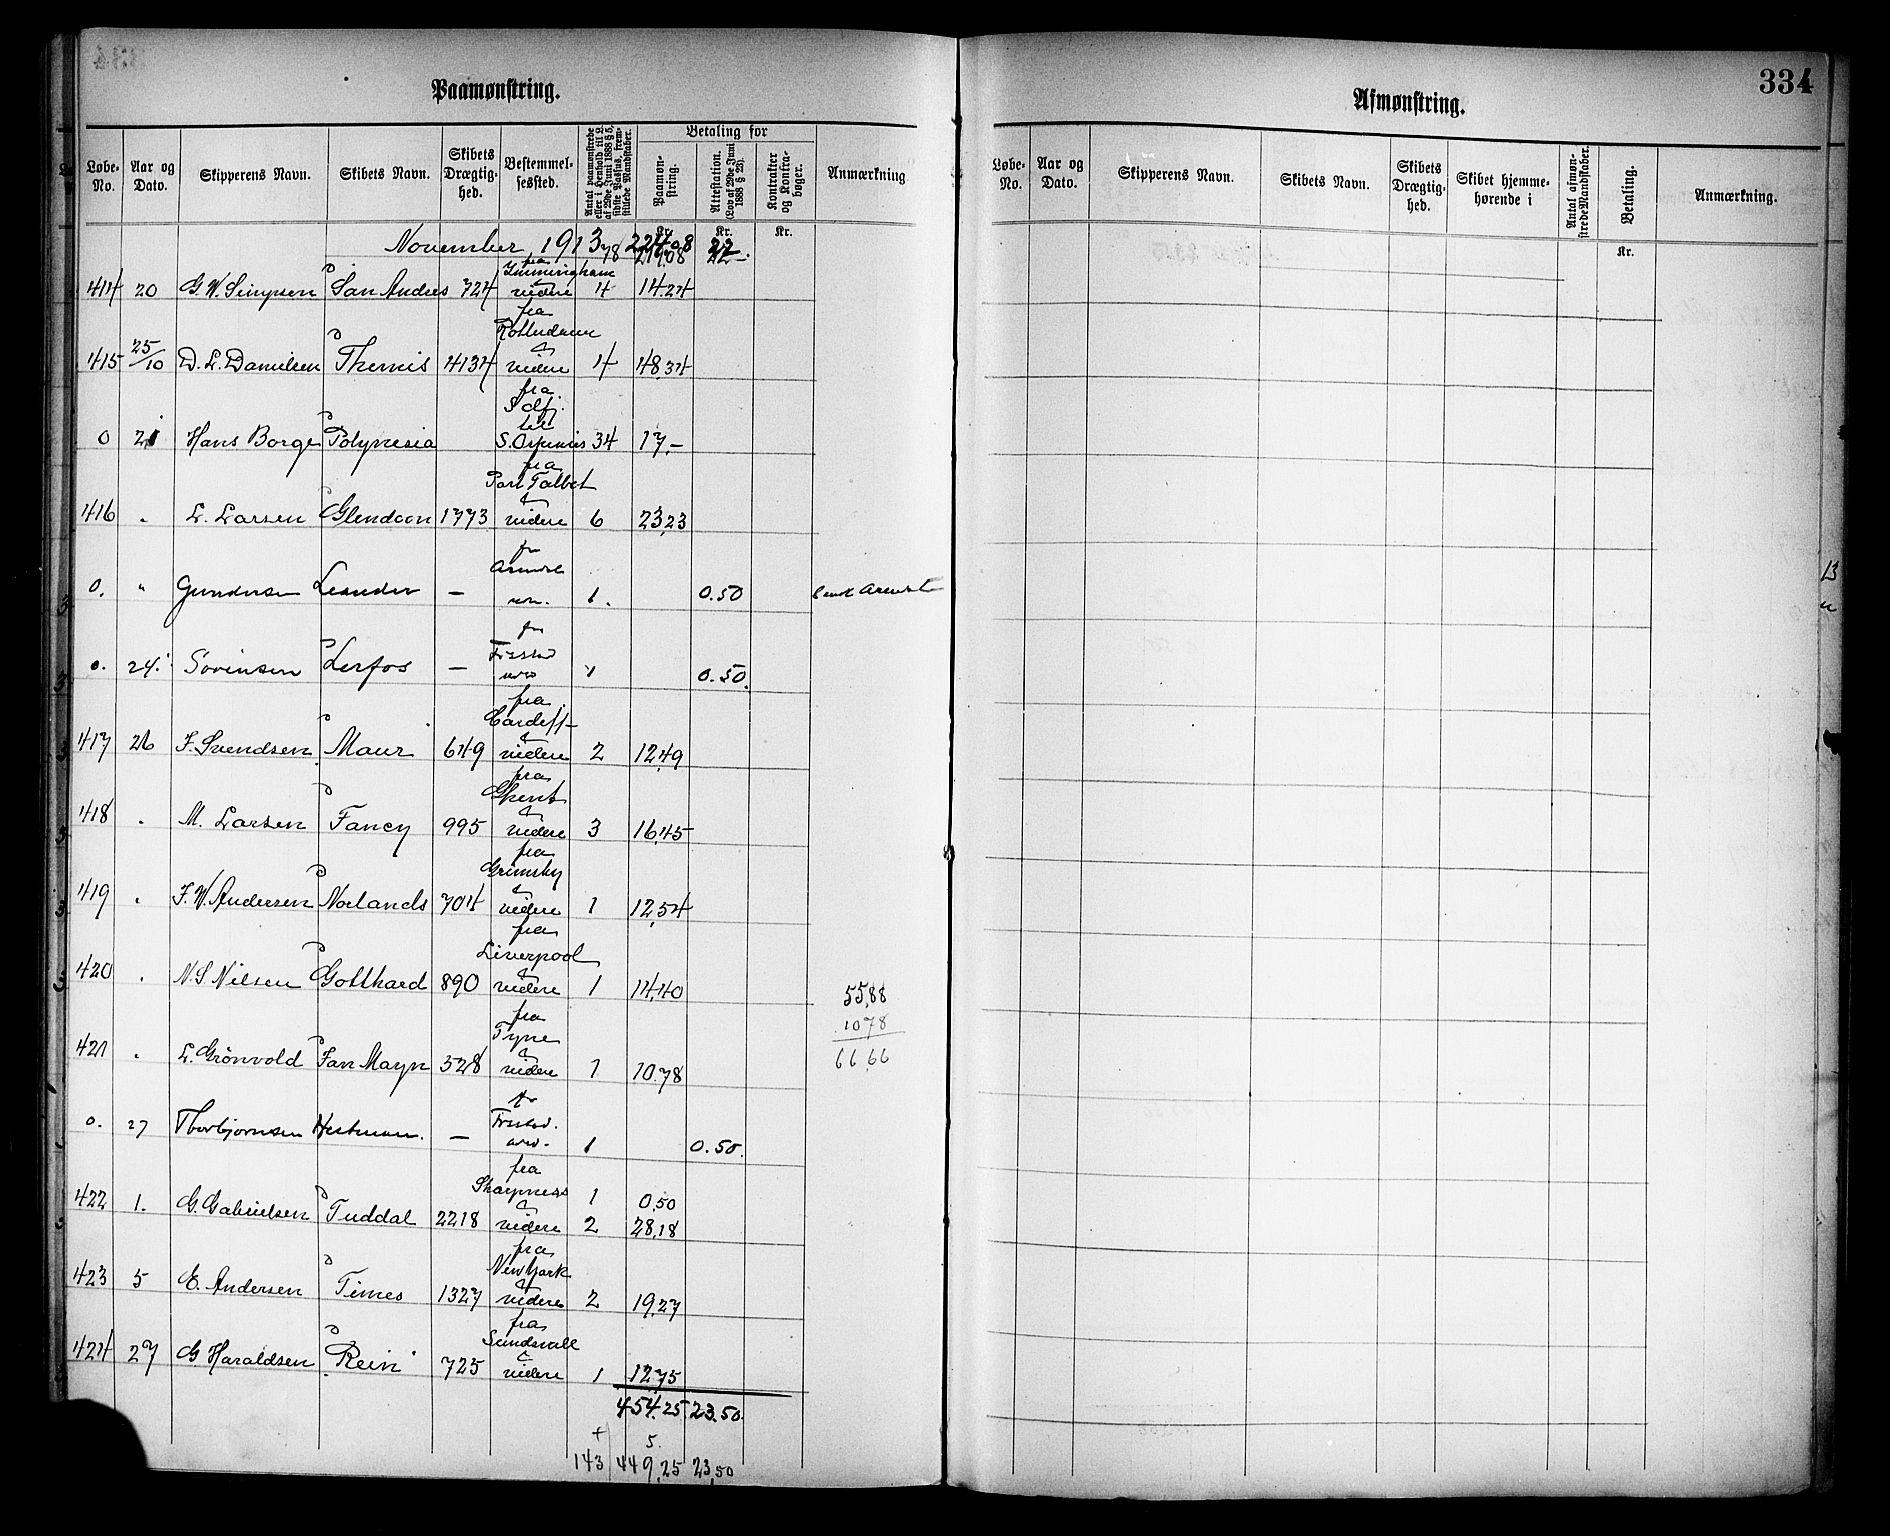 Paamønstring.
Løbe-No. Aar og Dato. Skipperens Navn. Skibets Navn. Skibets Drægtighed. Bestemmelsessted. Antal paamønstrede eller i Henhold til 2. af 29de Juni 1888 § 5, sidste Passus, fremstillede Mandskaber. Betaling for Paamønstring. Attestation. (Lov af 29de Juni 1888 § 23). Kontrakter og Kontrabøger. Anmærkning
Kr. Kr. Kr.
November 1913 78 219,08 22-
fra Immingham
414 20 G. W. Simpsen San Andres 724 & videre 4 14.24
fra Rotterdam
415 25/10 D. L. Danielsen Themis 4134 & videre 4 48,34
fra Sdfj. til
0 21 Hans Borge Polynesia S. Orkenies 34 17,-
fra Port Talbot
416 " L. Larsen Glendoon 1773 & videre 6 23,23
fr Arendal
0. " Gundersen Leander - 1. 0.50 Send Arendal
fr Frstad
0. 24. Sörensen Lerfos - 1 0.50.
fra Cardiff
417 26 F. Svendsen Maur 649 & videre 2 12,49
fra Ghent
418 " M. Larsen Fancy 995 & videre 3 16,45
fra Grimsby
419 " F. W. Andersen Norlands 704 & videre 1 12,54
fra Liverpool
420 " N. S. Nilsen Gotthard 890 & videre 1 14,40
55,88
1078
66,66
fra Tyne
421 " L. Grönvold Jan Mayn 528 & videre 1 10.78
fr Frstad.
0. 27 Thorbjørnsen Hestmann. - 1 0.50.
fra Sharpness 1 0,50
422 1. G. Gabrielsen Tuddal 2218 & videre 2 28,18
fra New York
423 5 E. Andersen Times 1327 & videre 2 19,27
fra Sundsvall
424 27 G Haraldsen Rein 725 & videre 1 12,75
454.25 23.50.
+ 5.
143 449,25 23,50
Afmønstring.
334
Løbe-No. Aar og Dato. Skipperens Navn. Skibets Navn. Skibets Drægtighed. Skibet hjemmehørende i Antal afmønstrede Mandskaber. Betaling. Anmærkning.
Kr.